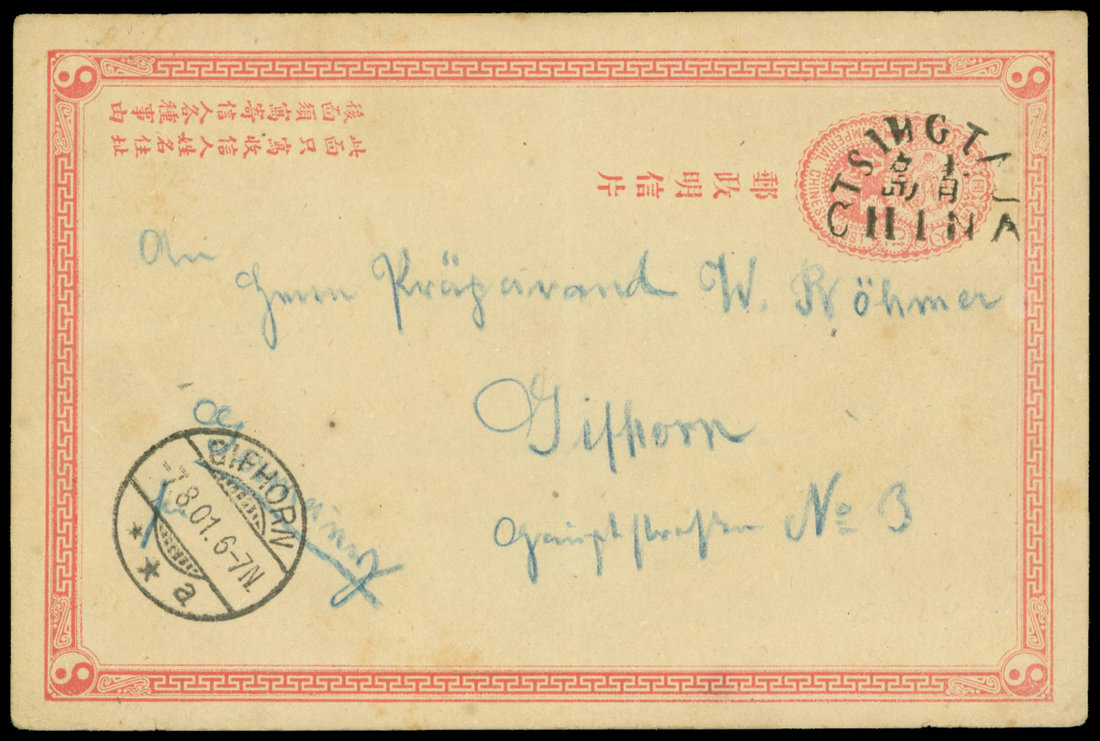 後面須寫寄信人各種事由
此面只寫收信人姓名住址
郵政明信片
CHINESE IMPERIAL
TSINGTAU
青島
CHINA
An
Herrn Präparand W. Böhmer
Gifhorn
Hauptstraße No 3
Germany
GIFHORN
-7.8.01.6-7N.
a